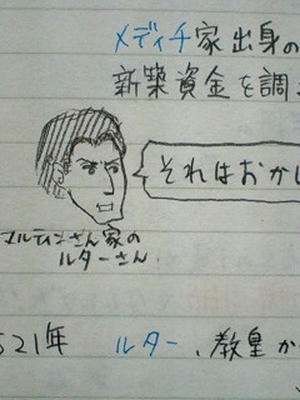 メディチ家出身の
新築資金を調
それはおか
マルティンさん家の
ルターさん
521年 ルター、教皇か